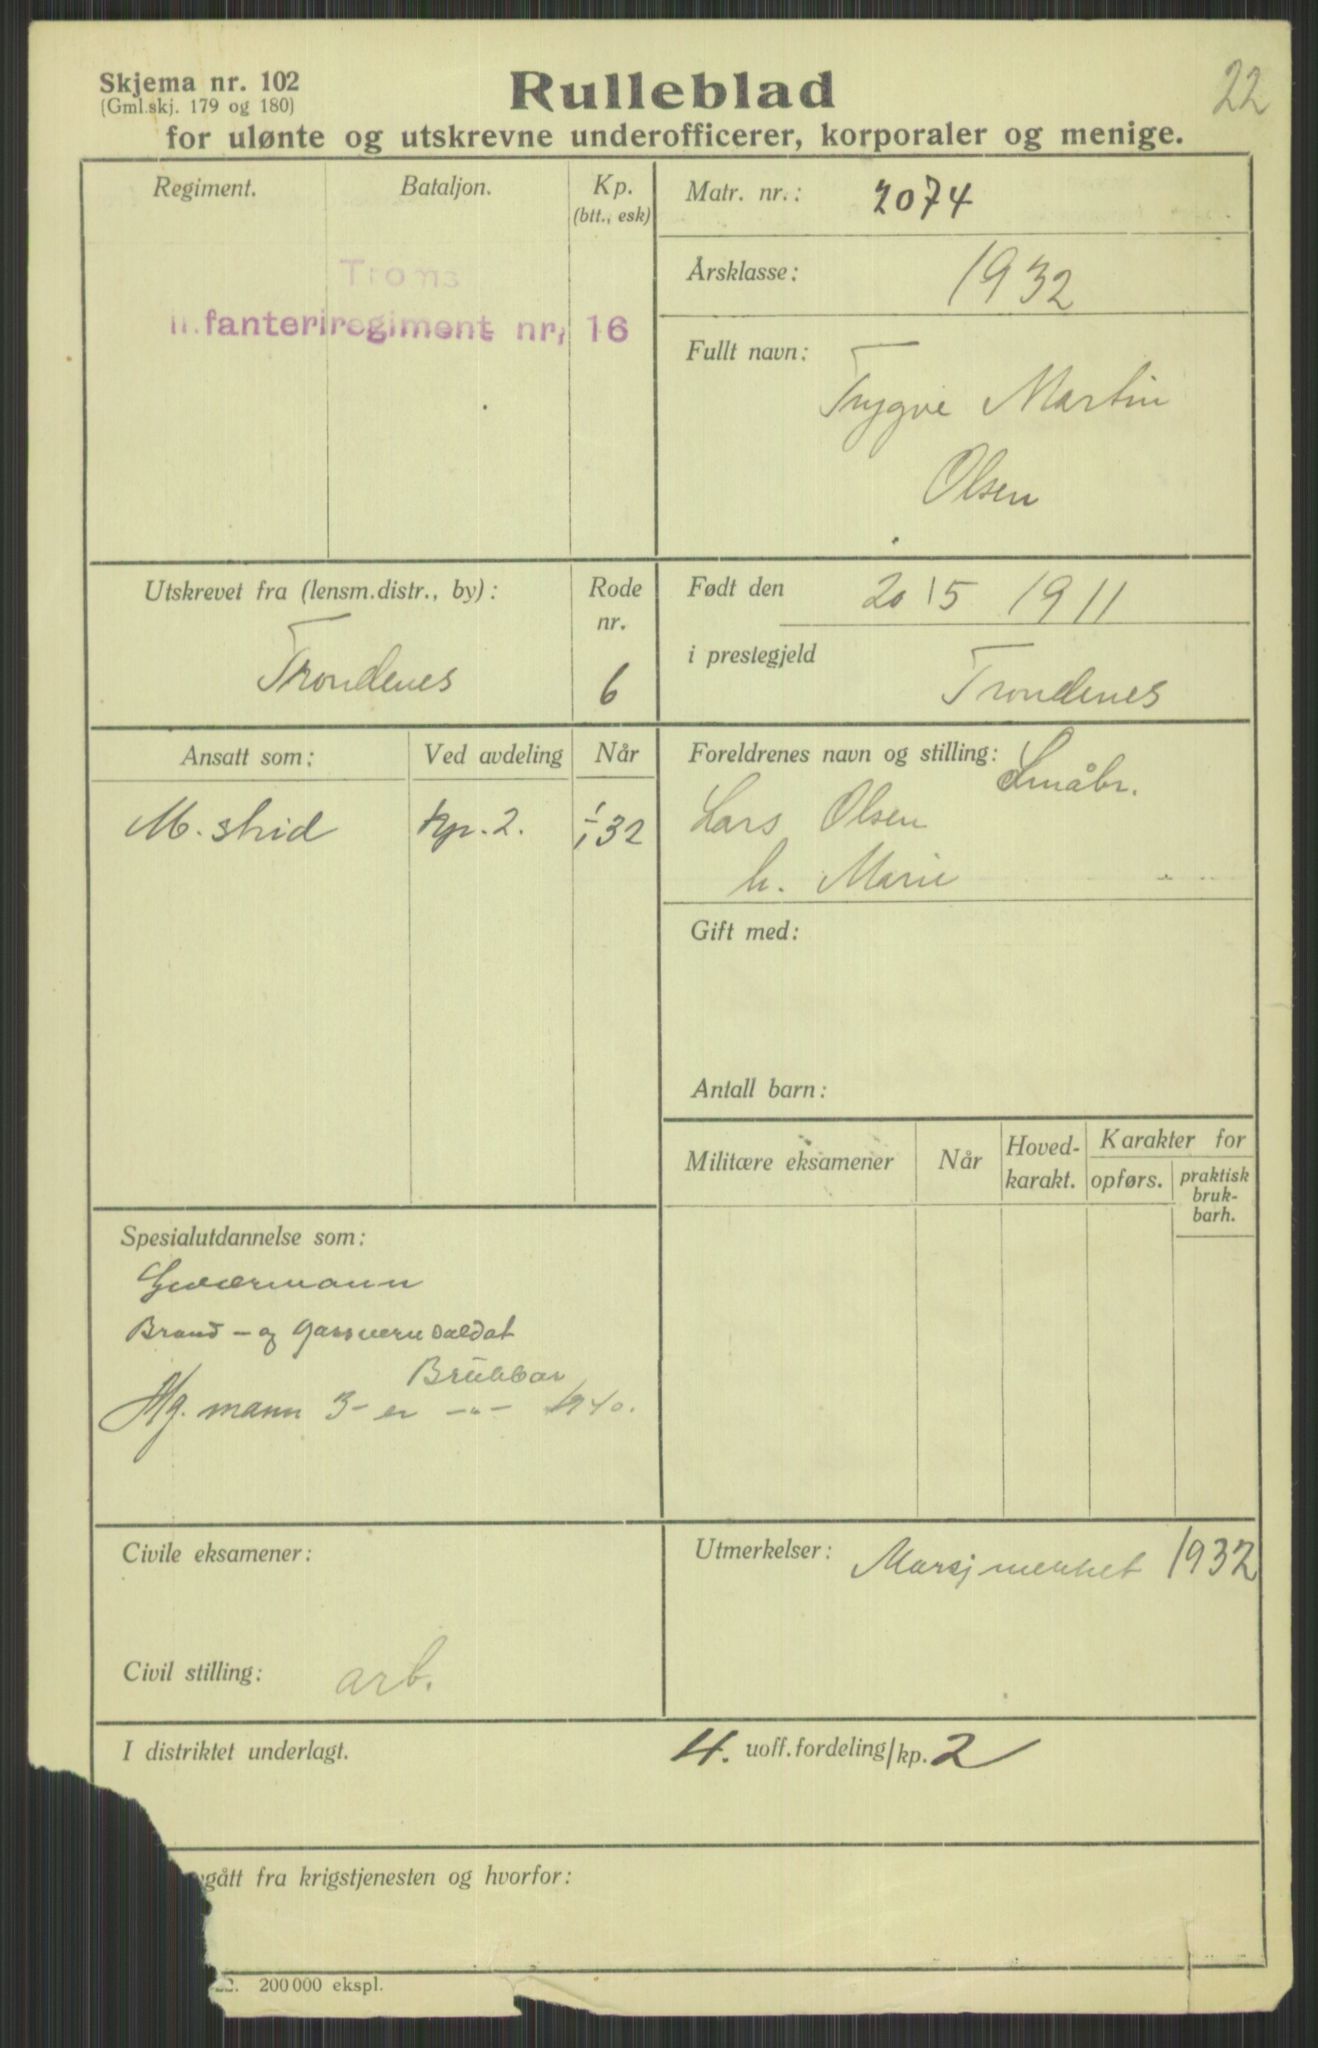 22
Skjema nr. 102
(Gml.skj. 179 og 180)
Rulleblad
for ulønte og utskrevne underofficerer, korporaler og menige.
Regiment.
Bataljon.
Kp.
(btt., esk)
Troms
Infanteriregiment nr. 16
Matr. nr.: 2074
Årsklasse: 1932
Fullt navn:
Trygve Martin
Olsen
Utskrevet fra (lensm.distr., by):
Trondenes
Rode
nr.
6
Født den 20/5 1911
i prestegjeld
Trondenes
Ansatt som:
Ved avdeling
Når
M. strid
kp. 2.
1/1 32
Foreldrenes navn og stilling: Småbr.
Lars Olsen
h. Marie
Gift med:
Antall barn:
Militære eksamener
Når
Hoved-
karakt.
Karakter for
opførs.
praktisk
bruk-
barh.
Spesialutdannelse som:
Geværmann
Brand - og Gassvernsoldat
Brukbar
Mg. mann 3- er -"- 1940.
Civile eksamener:
Civil stilling: arb.
Utmerkelser: Marsjmerket 1932
I distriktet underlagt.
4. uoff.fordeling/kp. 2
gått fra krigstjenesten og hvorfor:
22. 200 000 ekspl.